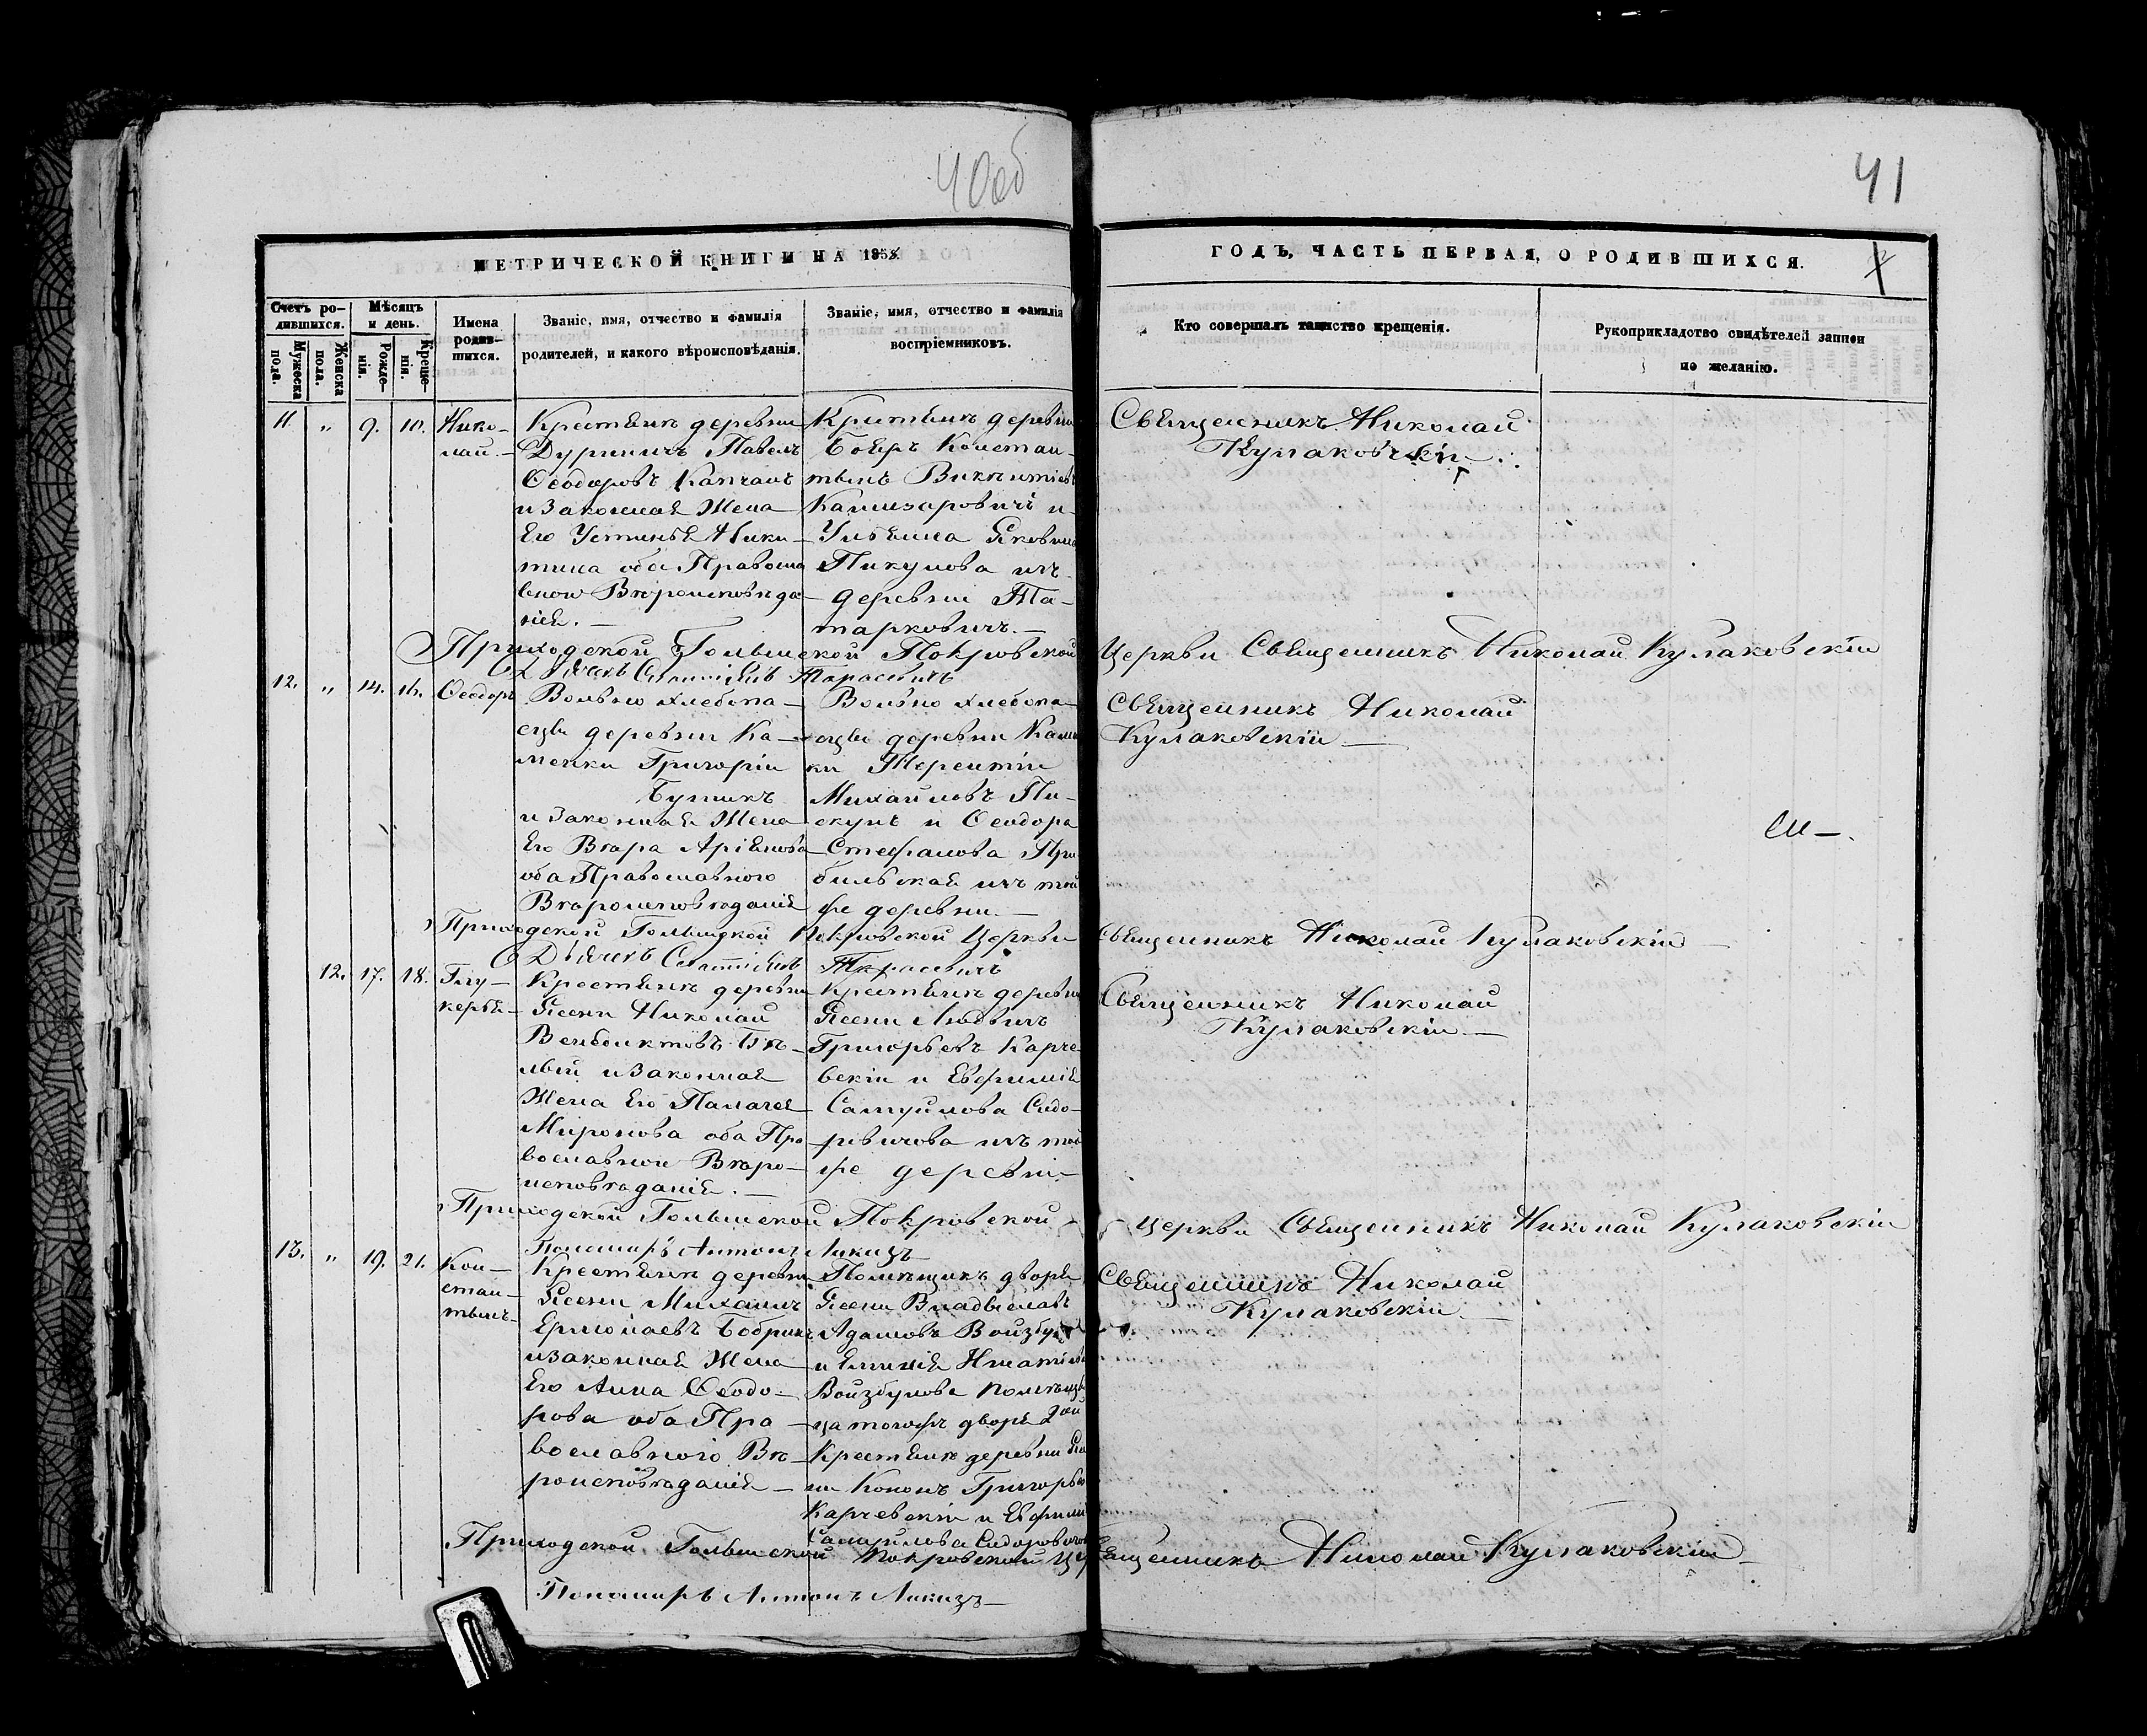 40об
41
МЕТРИЧЕСКОЙ КНИГИ НА 185
ГОДЪ, ЧАСТЬ ПЕРВАЯ, О РОДИВШИХСЯ.
Счетъ ро-
дившихся.
Мужеска пола.
Женска пола.
Мѣсяцъ
и день.
Рожде-
нія.
Креще-
нія.
Имена
родив-
шихся.
Званіе, имя, отчество и фамилія
родителей, и какого вѣроисповѣданія.
Званіе, имя, отчество и фамилія
воспріемниковъ.
Кто совершалъ таинство крещенія.
Рукоприкладство свидѣтелей записи
по желанію.
11. " 9. 10.
Нико-
лай.
Крестьянъ деревни
Дурыничъ Павелъ
Ѳеодоровъ Капчанъ
и законная Жена
Его Устинья Ники-
тина оба Правосла
вной Вѣроисповѣда
нія.
Крестьянъ деревни
Бояръ Констан-
тынъ Викентіевъ
Казизаровичъ и
Ульяна Яковлева
Пикулова изъ
деревни Та-
тарковичъ.
Священникъ Николай
Кулаковскій.
Приходской Голынской Покровской Церкви Священникъ Николай Кулаковскій
Дьячекъ Силитіянъ Тарасевичъ
12. " 14. 16.
Ѳеодоръ
Вольно хлебопа-
шцы деревни Ка-
менки Григорій
Бутикъ
и законная Жена
Его Вѣра Аріянова
оба Православного
Вѣроисповѣданія
Вольно хлебопа-
шцы деревни Камен
ки Терентій
Михайловъ Пи-
скунъ и Ѳеодора
Стефанова При
бильская изъ той
же деревни.
Священникъ Николай
Кулаковскій
Приходской Голынской Покровской Церкви Священникъ Николай Кулаковскій
Дьячекъ Силитіянъ Тарасевичъ
12. 17. 18.
Глу-
керья
Крестьянъ деревни
Ясени Николай
Венедиктовъ Бѣ-
лый и законная
Жена Его Палагея
Миронова оба Пра
вославной Вѣро-
исповѣданія.
Крестьянъ деревни
Ясени Людвигъ
Григорьевъ Карче
вскій и Евфимія
Самуйлова Сидо-
ровичова изъ той
же деревни
Священникъ Николай
Кулаковскій
Приходской Голынской Покровской Церкви Священникъ Николай Кулаковскій
Пономарь Антонъ Ликизъ
13. " 19. 21.
Кон-
стан-
тынъ
Крестьянъ деревни
Ясени Михаилъ
Ермолаевъ Бобрикъ
и законная Жена
Его Анна Ѳеодо-
рова оба Пра
вославного Вѣ-
роисповѣданія
Помѣщикъ двора
Ясени Владыславъ
Адамовъ Войзбу
и Емилія Игнатіева
Войзбунова помѣщи
ца тогожъ двора 2ой
Крестьянъ деревни Ясе
ни Кононъ Григорьевъ
Карчевскій и Евфимія
Самуйлова Сидоровичова
Священникъ Николай
Кулаковскій.
Приходской Голынской Покровской Церкви Священникъ Николай Кулаковскій
Пономарь Антонъ Ликизъ